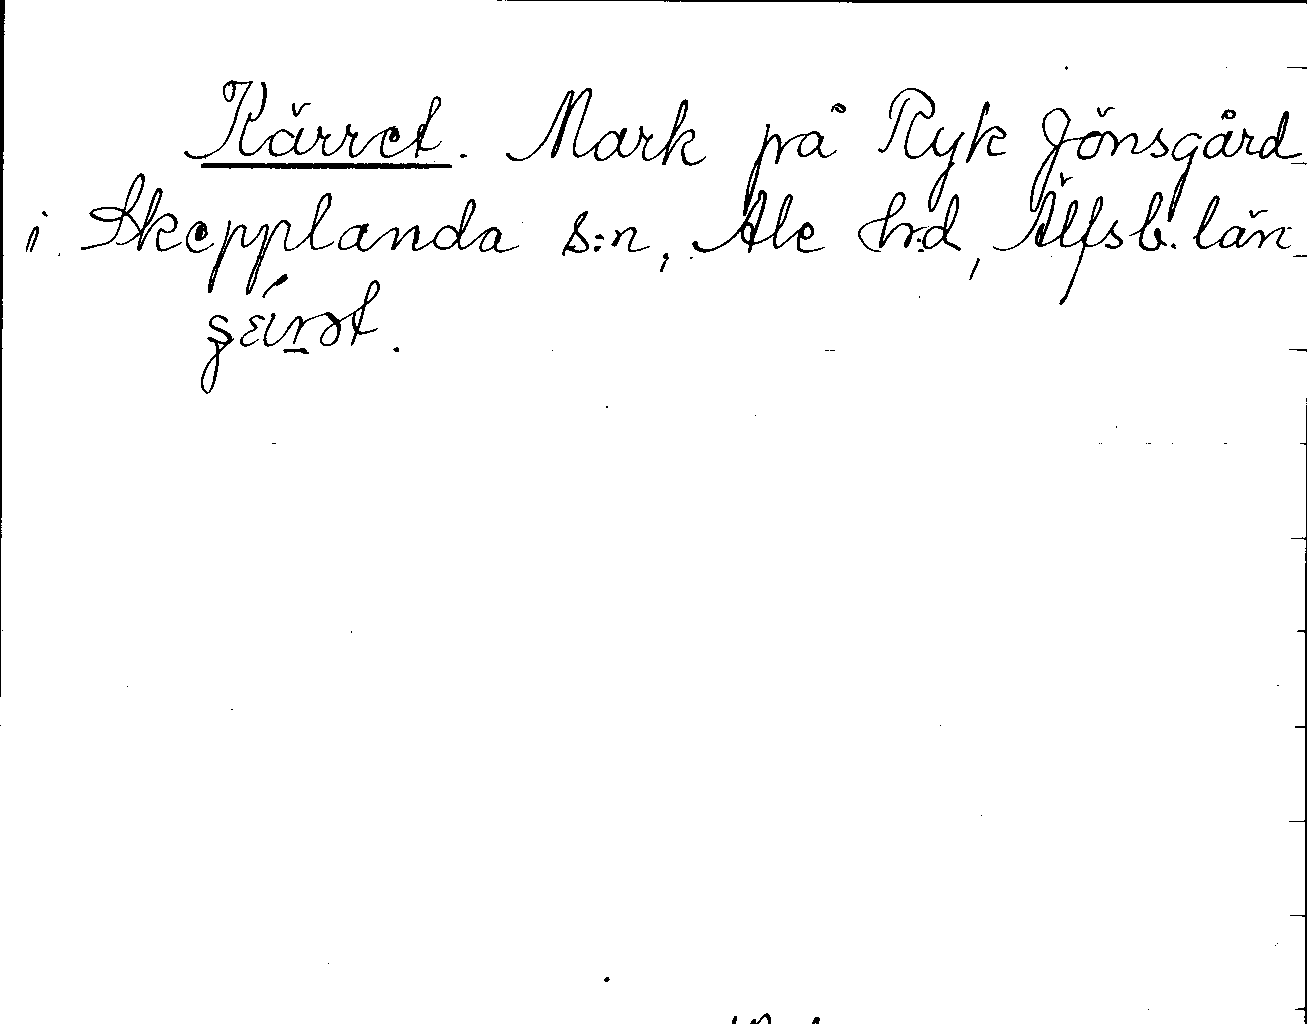 Kärret. Mark på Ryk Jönsgård
i Skepplanda s:n, Ale h:d, Älfsb. län